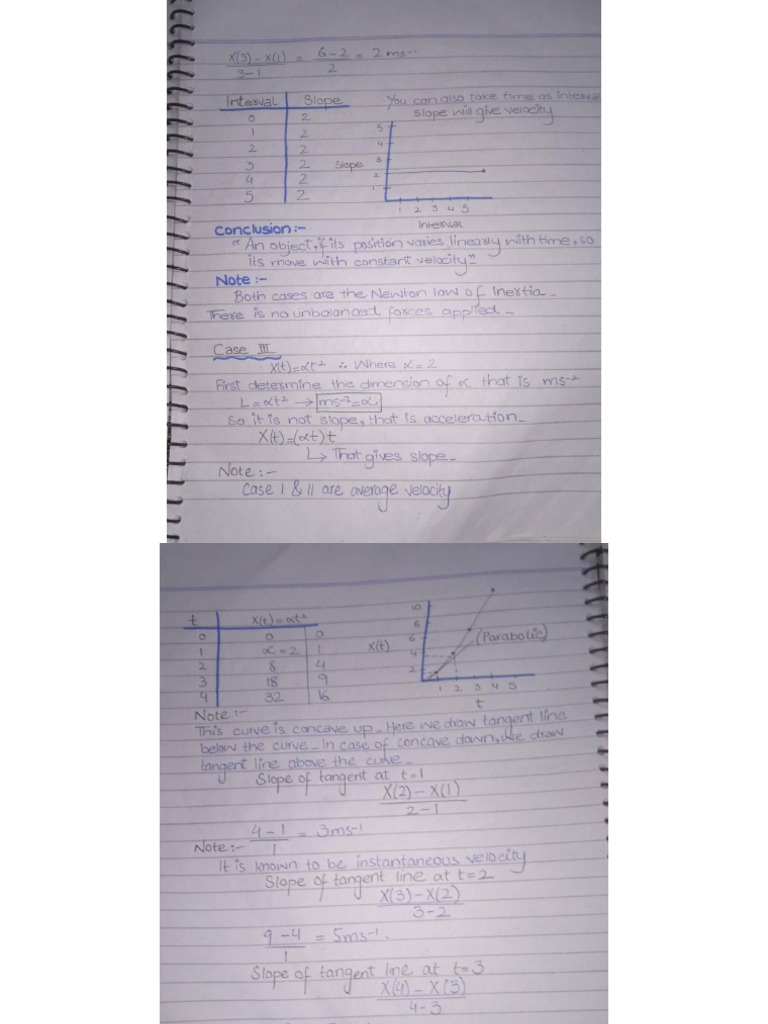 X(3) - X(1) = 6-2 = 2ms⁻¹
3-1 2
Interval Slope
0 2
1 2
2 2
3 2
4 2
5 2
You can also take time as interval
slope will give velocity
5
4
3
Slope 2
1
1 2 3 4 5
Interval
Conclusion:-
"An object, if its position varies linearly with time, so
its move with constant velocity"
Note:-
Both cases are the Newton law of Inertia.
There is no unbalanced forces applied.
Case III
X(t)=αt² ∴ Where α=2
First determine the dimension of α that is ms⁻²
L=αt² → ms⁻²=α
So it is not slope, that is acceleration.
X(t)=(αt)t
↳ That gives slope.
Note:-
Case I & II are average velocity
t X(t)=αt²
0 0 0
1 α=2 1
2 8 4
3 18 9
4 32 16
10
8
6
X(t) 4
2
(Parabolic)
1 2 3 4 5
t
Note:-
This curve is concave up. Here we draw tangent line
below the curve. In case of concave down, we draw
tangent line above the curve.
Slope of tangent at t=1
X(2) - X(1)
2-1
4-1 = 3ms⁻¹
1
Note:-
It is known to be instantaneous velocity
Slope of tangent line at t=2
X(3) - X(2)
3-2
9-4 = 5ms⁻¹.
1
Slope of tangent line at t=3
X(4) - X(3)
4-3